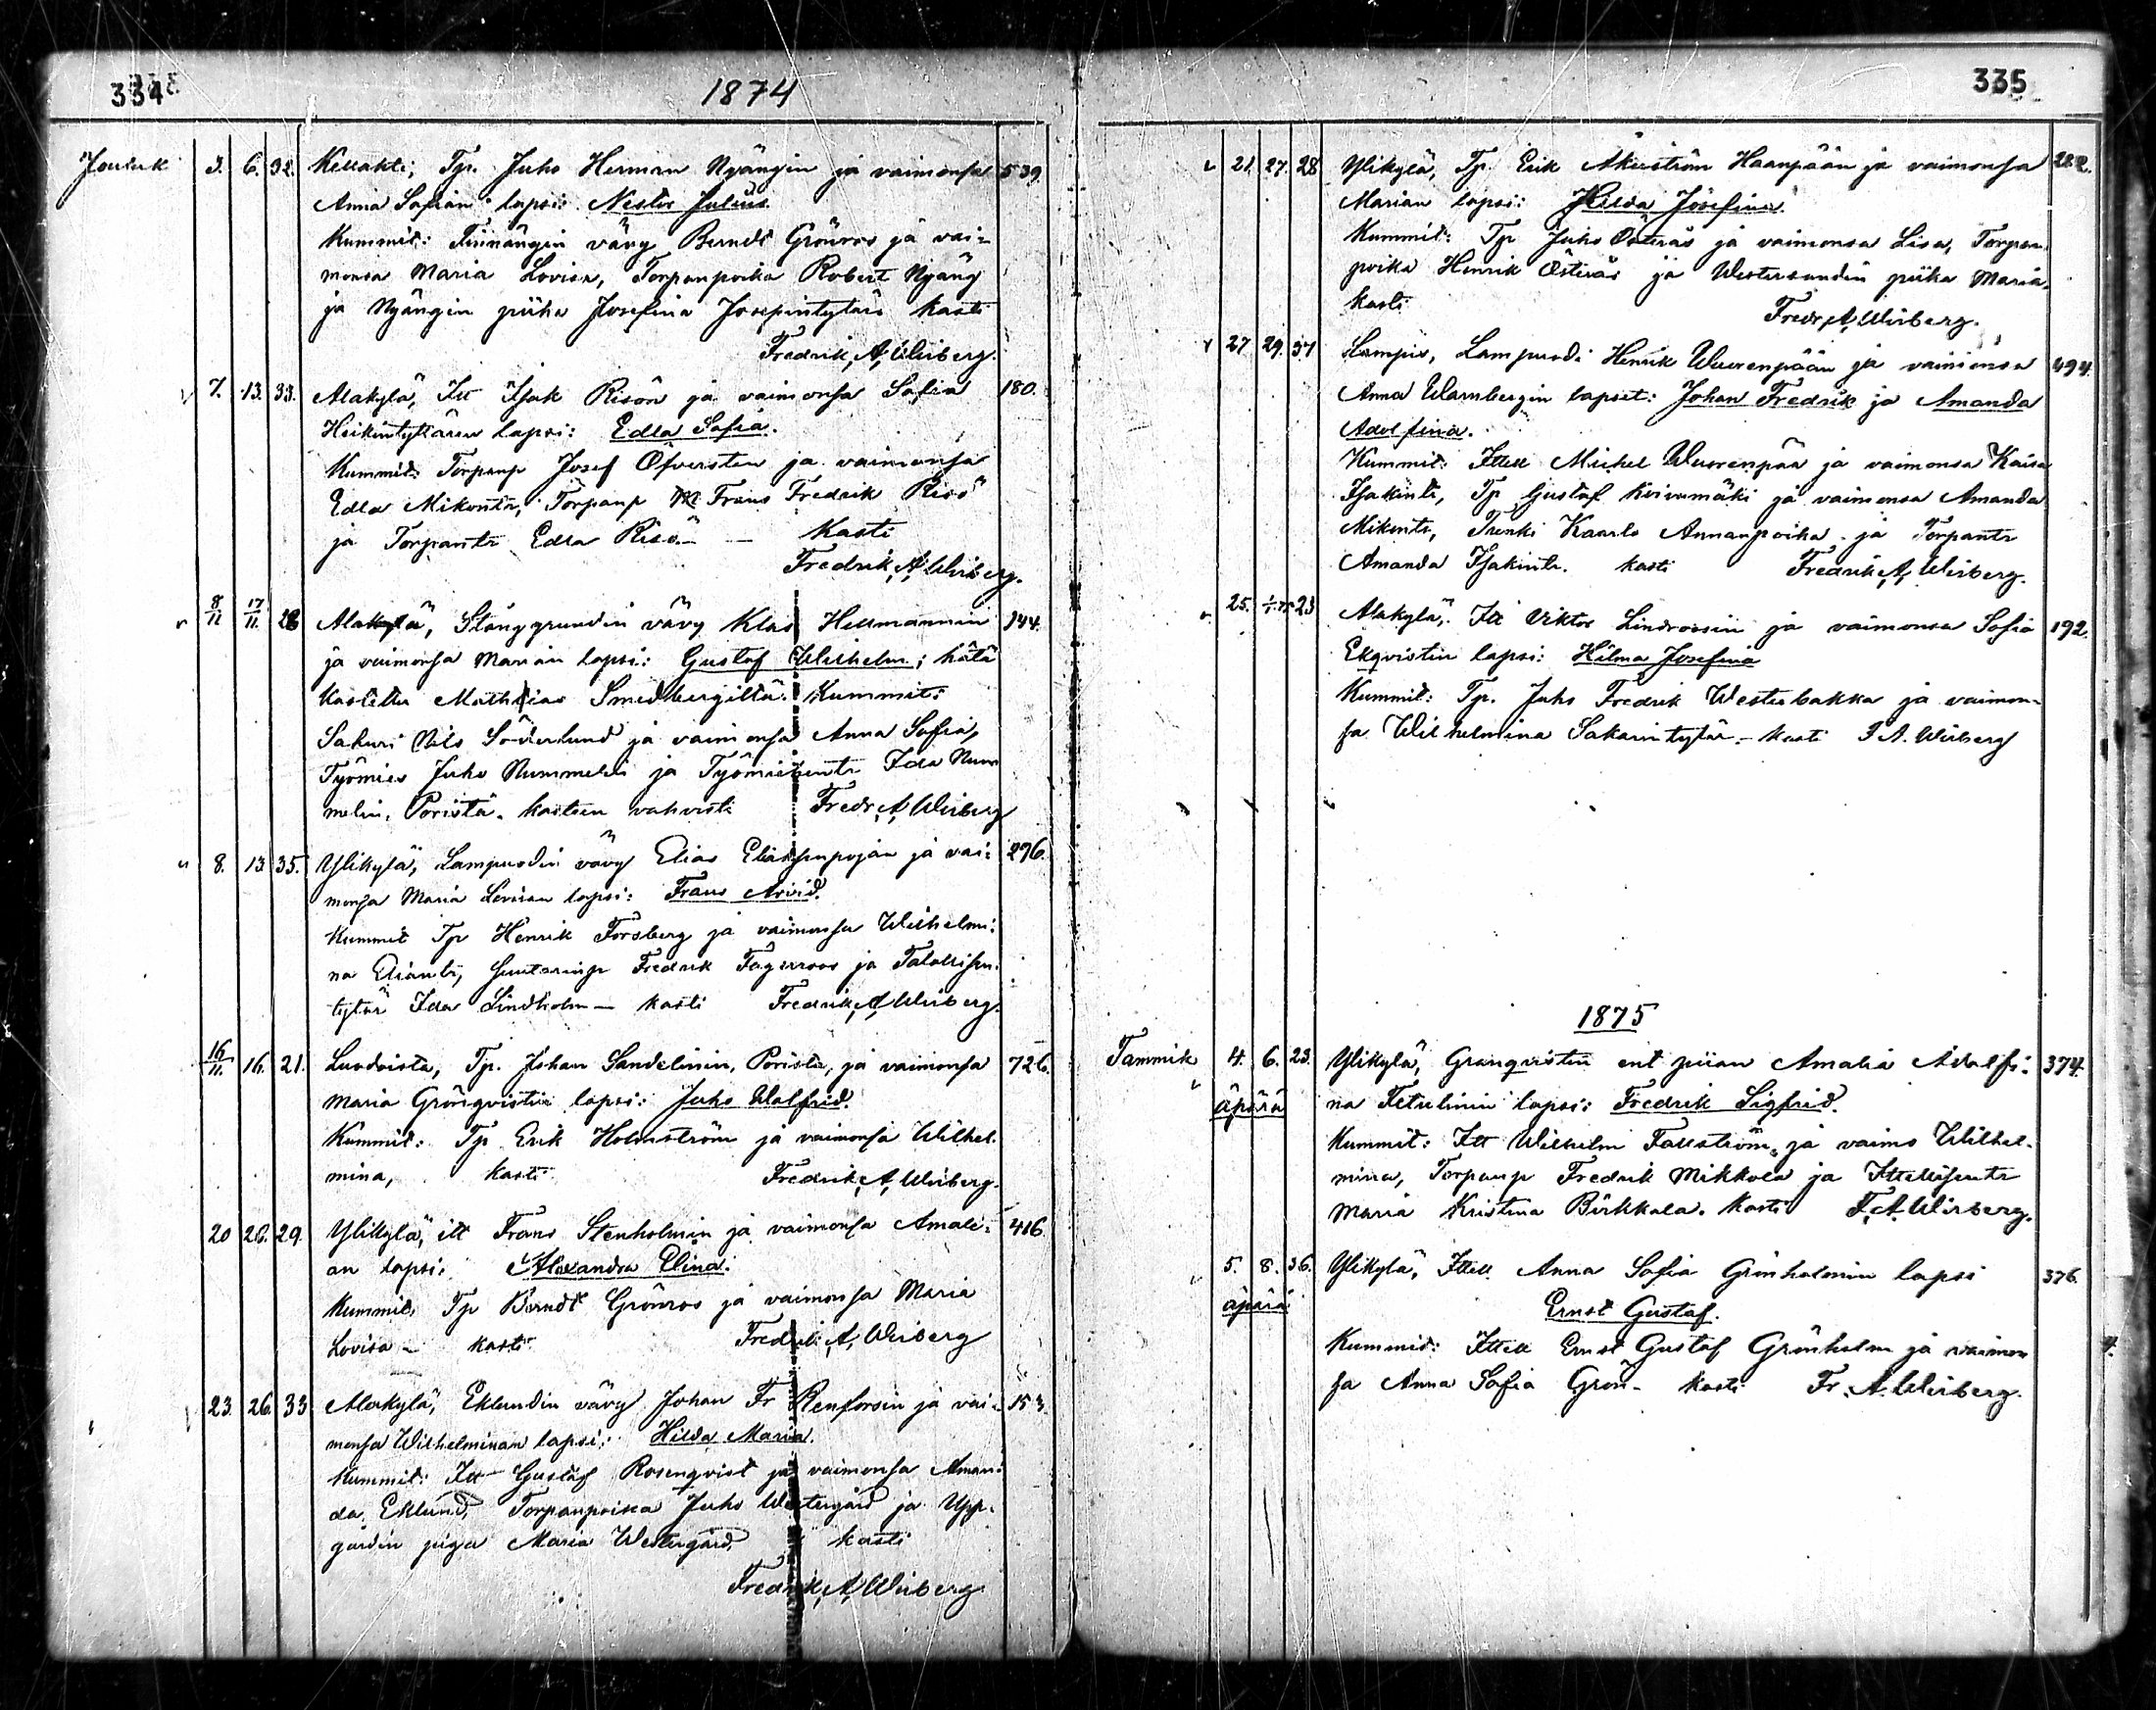 334
1874
Jouluk 3. 6. 32. Kellahti, Tp. Juho Herman Nyängin ja vaimonsa 539.
Anna Sofian lapsi: Nestor Julius.
Kummit: Finnängin vävy Berndt Grönros ja vai-
monsa Maria Lovisa, Torpanpoika Robert Nyäng
ja Nyängin piika Josefina Josepintytär kasti
Fredrik A. Wirberg.
7. 13. 33. Alakylä, Itt Isak Risön ja vaimonsa Sofia 180.
Heikintyttären lapsi: Edla Sofia.
Kummit: Torpanp Josef Öfversten ja vaimonsa
Edla Mikontr, Torpanp Frans Fredrik Risö
ja Torpantr Edla Risö. — kasti
Fredrik A. Wirberg.
8/11 17/11. 28 Alakylä, Stånggrundin vävy Klas Hellmannin 144.
ja vaimonsa Marian lapsi: Gustaf Wilhelm; hätä
kastettu Mathias Smedbergiltä. Kummit:
Sahuri Nils Söderlund ja vaimonsa Anna Sofia,
Työmies Juho Nummelin ja Työmiehentr Ida Num
melin, Porista. kasteen vahvisti Fredr. A. Wirberg
8. 13 35. Ylikylä, Lampuodin vävy Elias Eliaksenpojan ja vai- 276.
monsa Maria lapsi: Frans Arvid.
Kummit Tp Henrik Forsberg ja vaimonsa Wilhelmi-
na Eliantr, Suutarinp Fredrik Fagerroos ja Talollisen
tytär Ida Lindholm — kasti Fredrik A. Wirberg.
16/11. 16. 21. Luodoista, Tp. Johan Sandelinin, Porista, ja vaimonsa 726.
Maria Grönqvistin lapsi: Juho Walfrid.
Kummit: Tp Erik Holmström ja vaimonsa Wilhel-
mina, kasti Fredrik A. Wirberg.
20 26. 29. Ylikylä, itt Frans Stenholmin ja vaimonsa Amali- 416
an lapsi: Alexandra Elina.
Kummit, Tp Berndt Grönros ja vaimonsa Maria
Lovisa — kasti Fredrik A. Wirberg
23. 26. 33 Alakylä, Eklundin vävy Johan Fr Renforsin ja vai- 153.
monsa Wilhelminan lapsi: Hilda Maria.
Kummit: Itt Gustaf Rosenqvist ja vaimonsa Aman-
da Eklund, Torpanpoika Juho Westergård ja Upp-
gårdin piga Maria Westergård, kasti
Fredrik A. Wirberg
335
21. 27. 28 Ylikylä, Tp. Erik Haanpään ja vaimonsa 282.
Marian lapsi: Hilda Josefina.
Kummit: Tp Juho Österäs ja vaimonsa Lisa, Torpan-
poika Henrik Österäs ja Westersundin piika Maria.
kasti Fredr. A. Wirberg.
27 29. 37 Lampis, Lampuodi Henrik Wuorenpään ja vaimonsa 494.
Anna Warnbergin lapset: Johan Fredrik ja Amanda
Adolfina.
Kummit: Ittell Michel Wuorenpää ja vaimonsa Kaisa
Isakintr, Tp Gustaf Koivumäki ja vaimonsa Amanda
Mikontr, Trenki Kaarlo Annanpoika ja Torpantr
Amanda Isakintr. kasti Fredrik A. Wirberg.
25. 1/1.75 23 Alakylä. Itt Viktor Lindroosin ja vaimonsa Sofia 192.
Ekqvistin lapsi: Hilma Josefina
Kummit: Tp. Juho Fredrik Westerbakka ja vaimon-
sa Wilhelmina Sakarintytär. — kasti F A. Wirberg
1875
Tammik 4. 6. 23. Ylikylä, Granqvistin ent piian Amalia Adolfi- 374.
äpärä na lapsi: Fredrik Sigfrid.
Kummit: Itt Wilhelm Fallström, ja vaimo Wilhel-
mina, Torpanp Fredrik Mikkola ja Ittellisentr
Maria Kristina Birkkala. kasti F. A. Wirberg.
5. 8. 36. Ylikylä, Ittell. Anna Sofia Grönholmin lapsi 376.
äpärä Ernst Gustaf.
Kummit: Ittell Ernst Gustaf Grönholm ja vaimon
sa Anna Sofia Grön- kasti Fr. A. Wirberg.